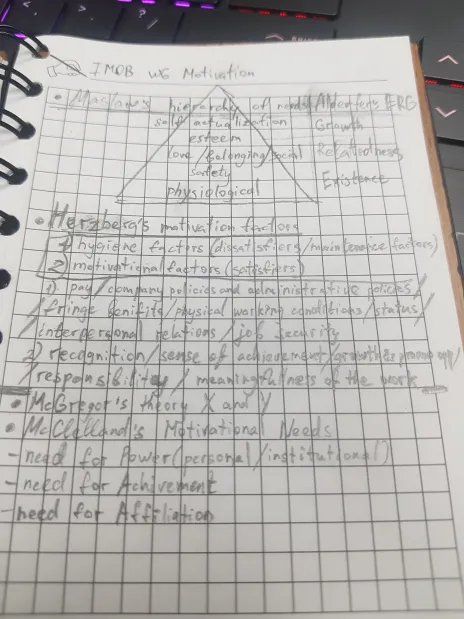 IMOB W6 Motivation
• Maslow's hierarchy of needs/Alderfer's ERG
self actualization Growth
esteem
love/belonging/social Relatedness
safety
physiological Existence
• Herzberg's motivation factors
1) hygiene factors (dissatisfiers/maintenance factors)
2) motivational factors (satisfiers)
1) pay/company policies and administrative policies/
fringe benifits/physical working conditions/status/
interpersonal relations/job security
2) recognition/sense of achievement/growth & promo opp/
responsibility/meaningfulness of the work
• McGregor's theory X and Y
• McClelland's Motivational Needs
-need for Power(personal/institutional)
-need for Achivement
-need for Affiliation